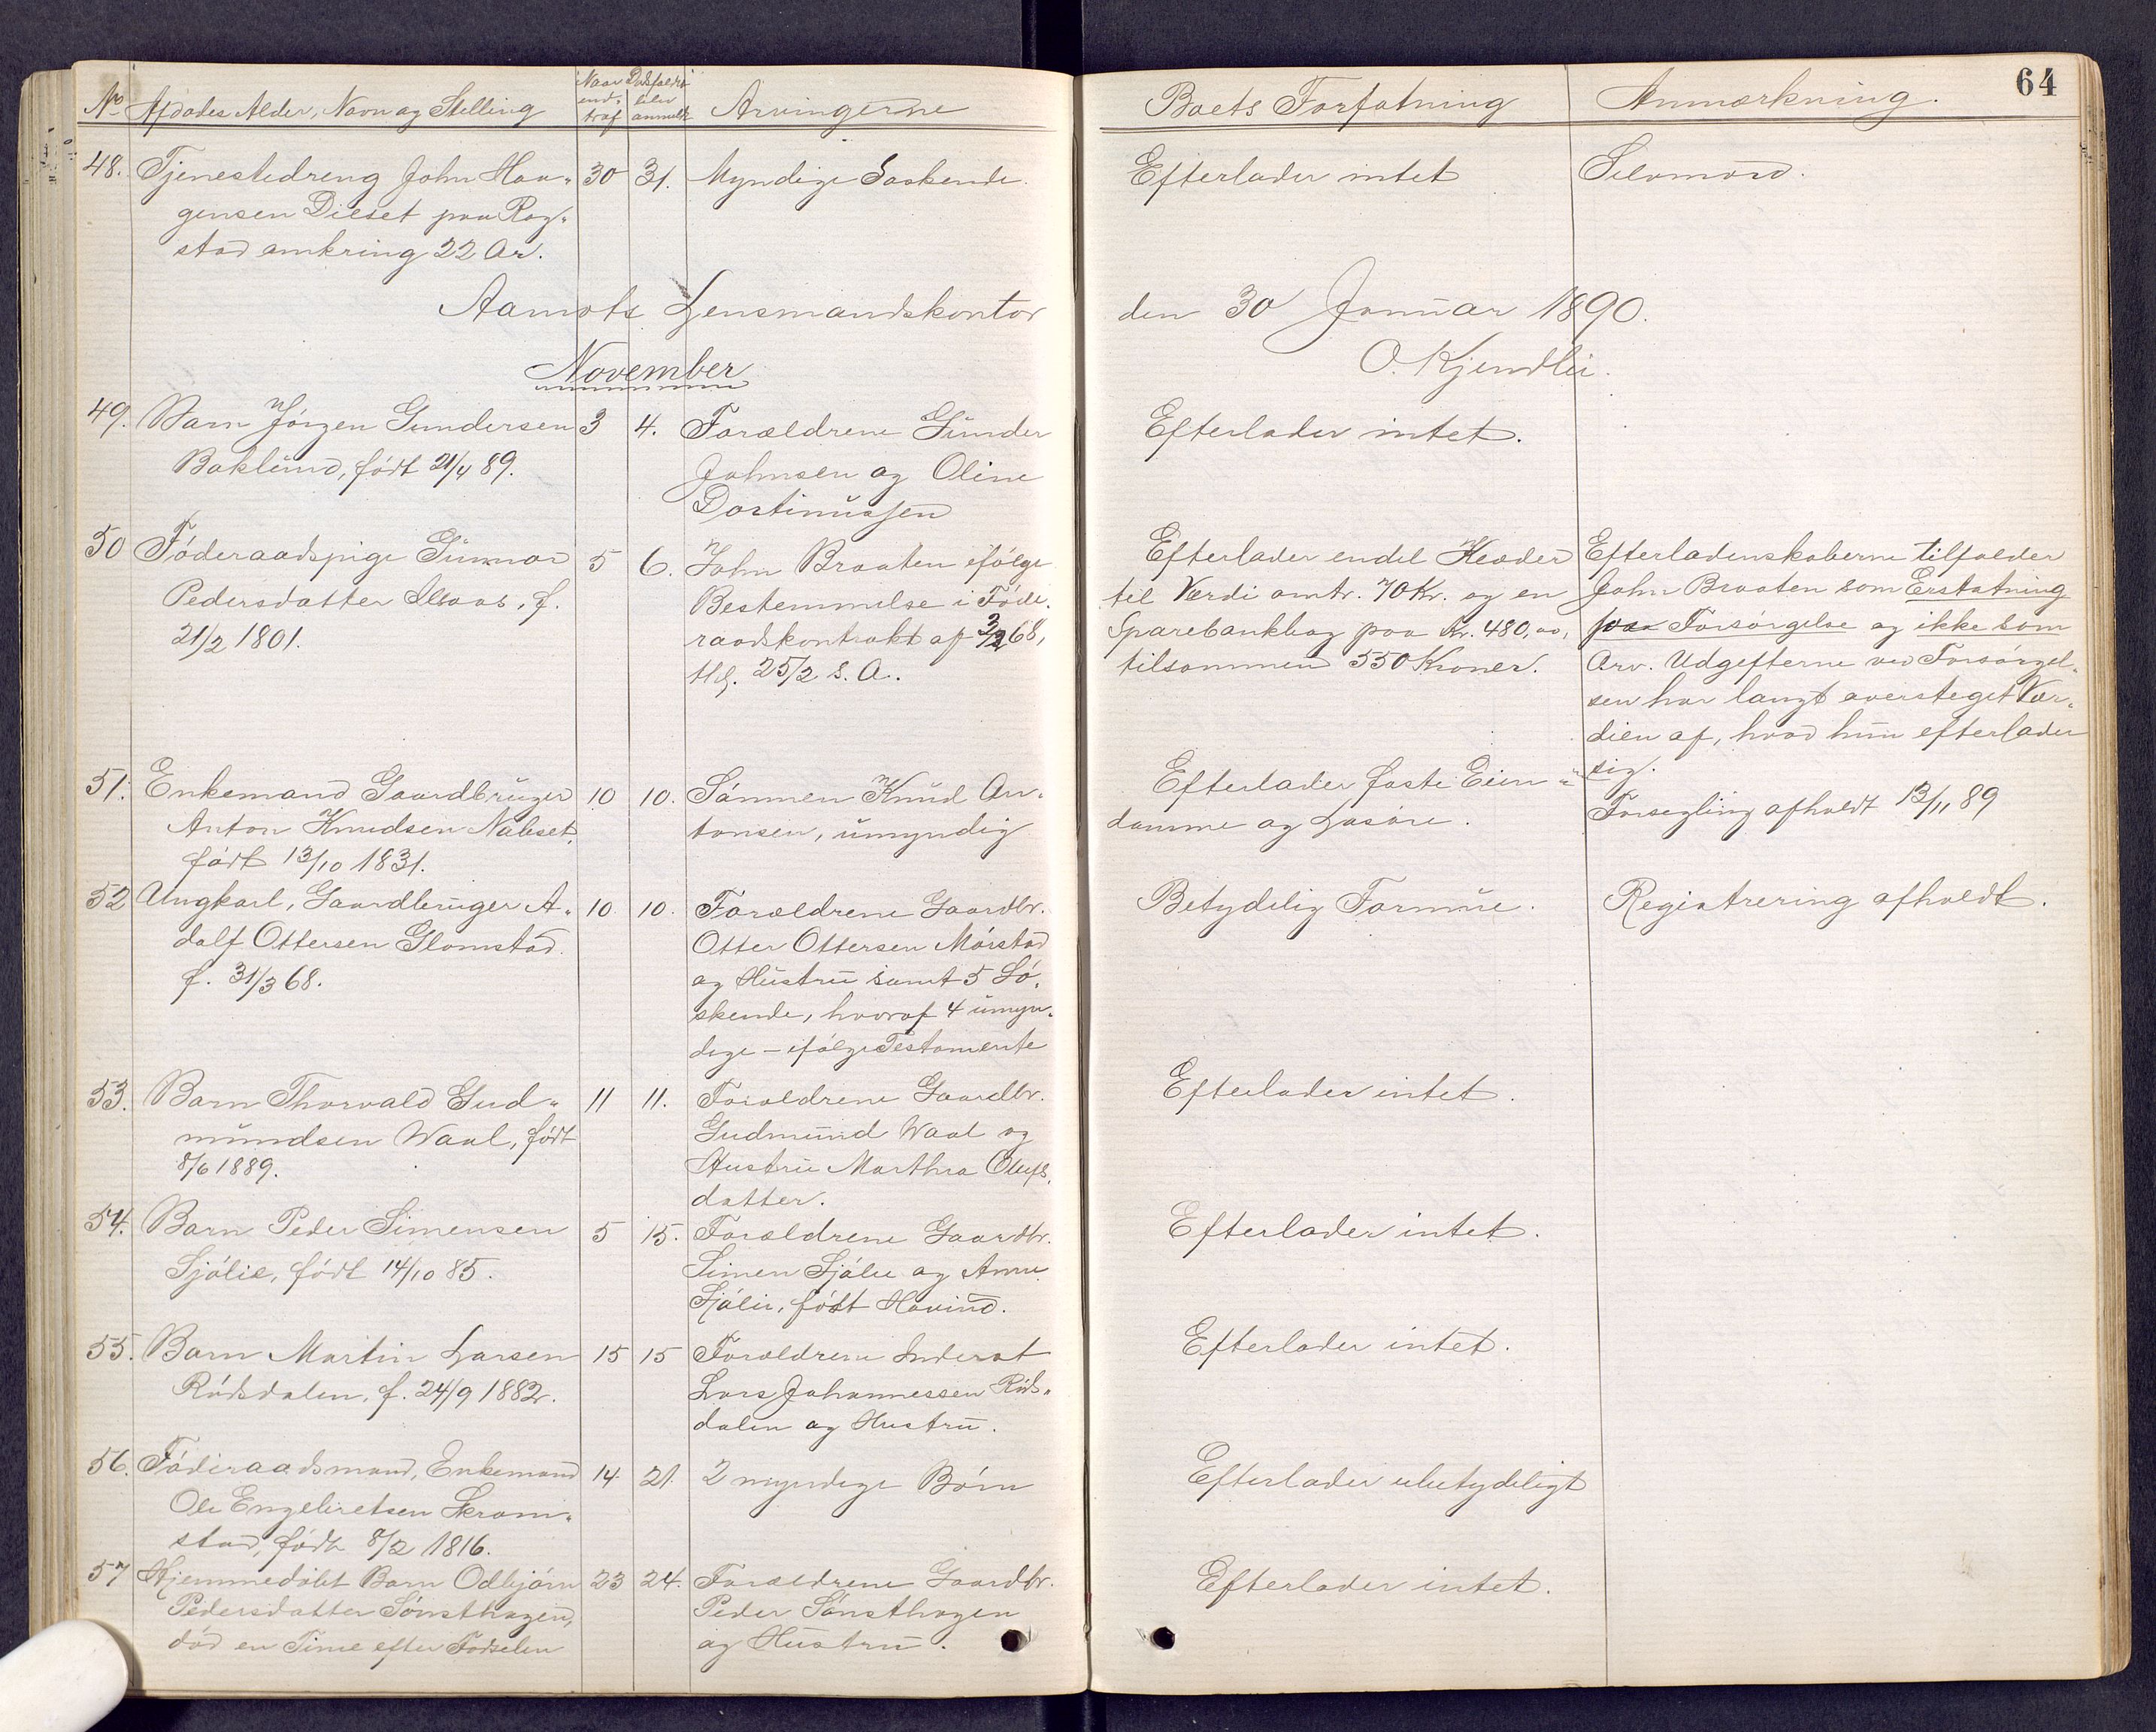 No Afdødes Alder, Navn og Stilling
Naar Dødsfaldet
indtraf blev anmeldt
Arvingerne
Boets Forfatning
Anmærkning.
64
48. Tjenestedreng John Haa- 30 31. Myndige Søskende. Efterlader intet Selvmord.
gensen Dieset paa Rog-
stad omkring 22 Ar.
Aamots Lensmandskontor den 30 Januar 1890.
O. Kjendlie.
November
49. Barn Jörgen Gundersen 3 4. Forældrene Gunder Efterlader intet.
Baklund, född 21/4 89. Johnsen og Oline
Dortinussen
50 Föderaadspige Gunnor 5 6. John Braaten ifølge Efterlader endel Klæder Efterladenskaberne tilfalder
Pedersdatter, f. Bestemmelse i Føde- til Værdi omtr. 70 Kr. og en John Braaten som Erstatning
21/2 1801. raadskontrakt af 3/2 68, Sparebankbog paa Kr. 480,00, paa Forsörgelse og ikke som
thl. 25/2 s. A. tilsammen 550 Kroner. Arv. Udgifterne ved Forsörgel-
sen har langt oversteget Vær-
dien af, hvad hun efterlader
sig.
51. Enkemand Gaardbruger 10 10. Sönnen Knud An- Efterlader faste Eien-
Anton Knudsen Nabset, tonsen, umyndig domme og Løsøre. Forsegling afholdt 13/11 89
født 13/10 1831.
52 Ungkarl, Gaardbruger A- 10. 10. Forældrene Gaardbr. Betydelig Formue. Registrering afholdt.
dolf Ottersen Glomstad. Otter Ottersen Mörstad
f. 31/3 68. og Hustru samt 5 Sö-
skende, hvoraf 4 umyn-
dige – ifølge Testamente
53. Barn Thorvald Gud- 11 11. Forældrene Gaardbr. Efterlader intet.
mundsen Waal, födt Gudmund Waal og
8/6 1889. Hustru Marthea Olufs-
datter.
54. Barn Peder Simensen 5 15. Forældrene Gaardbr. Efterlader intet.
Sjölie, födt 14/10 85. Simen Sjölie og Anne
Sjölie, födt Hovind.
55. Barn Martin Larsen 15 15 Forældrene Inderst Efterlader intet.
Rödsdalen, f. 24/9 1882. Lars Johannessen Röds-
dalen og Hustru.
56. Föderaadsmand, Enkemand 14. 21. 2 myndige Börn Efterlader ubetydeligt
Ole Engebretsen Skram-
stad, födt 8/2 1816.
57 Hjemmedöbt Barn Odbjörn 23 24. Forældrene Gaardbr. Efterlader intet.
Pedersdatter Sönsthagen, Peder Sönsthagen
död en Time efter Fødselen og Hustru.